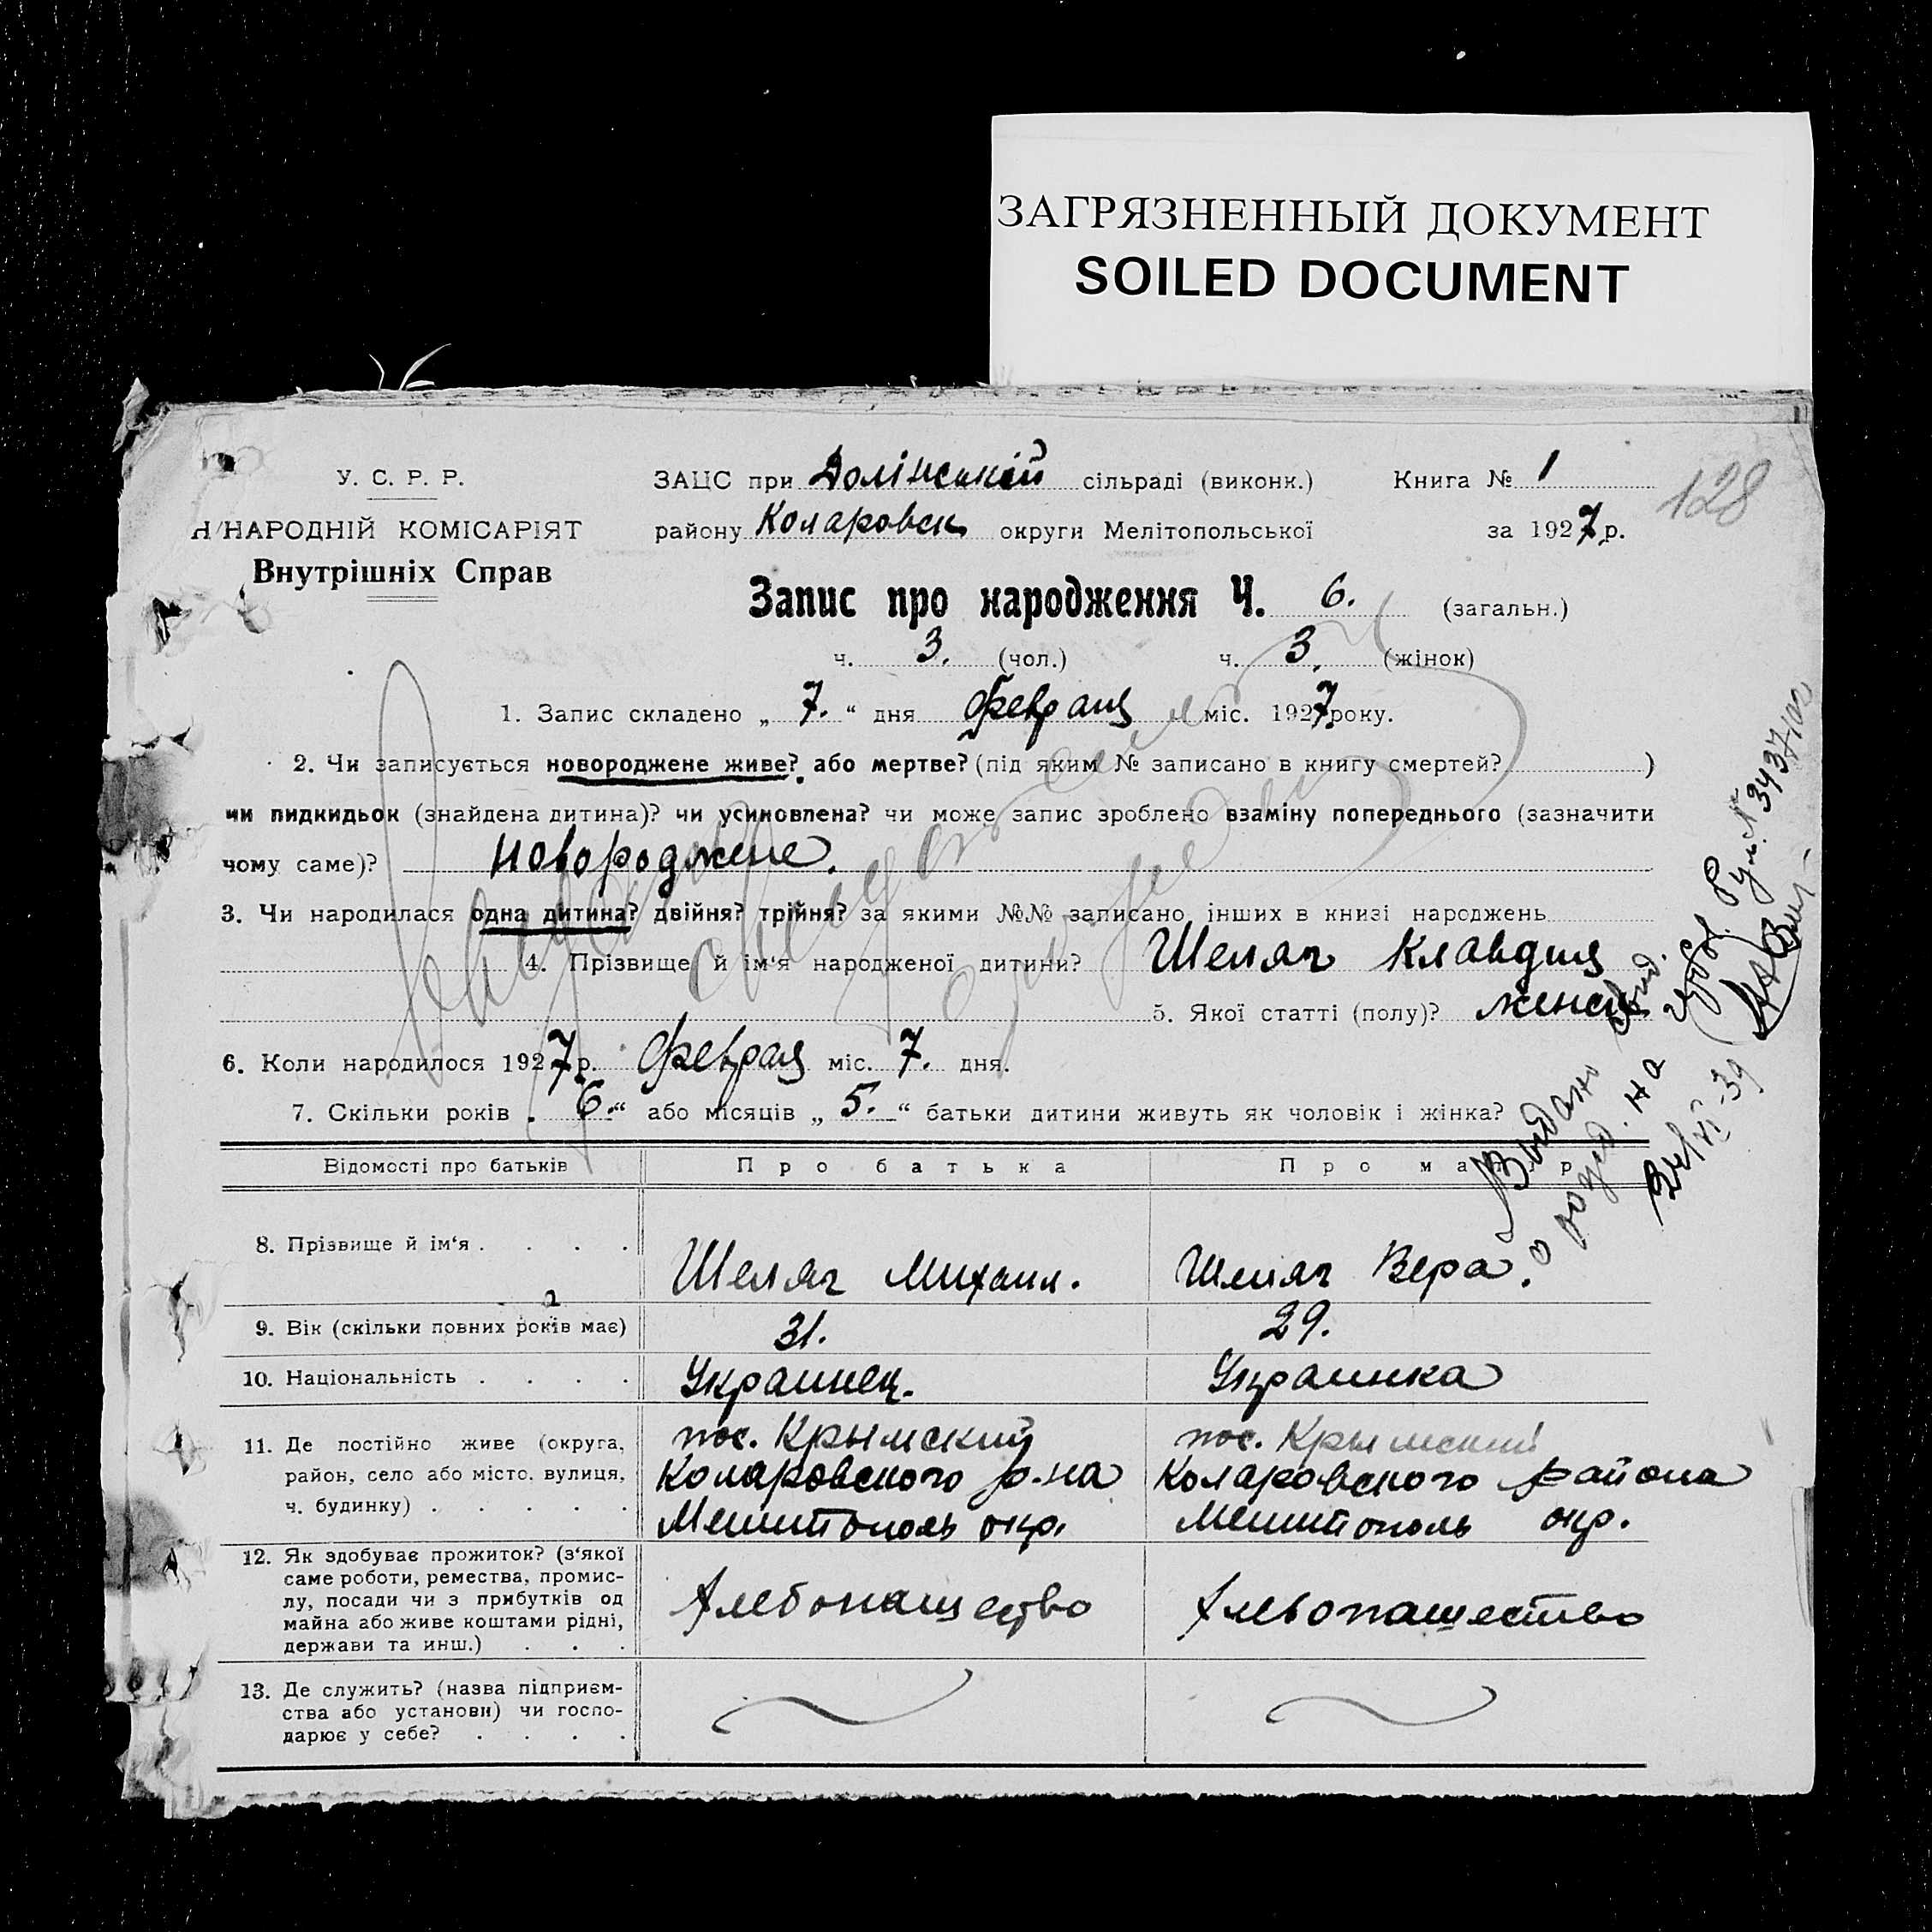 ЗАГРЯЗНЕННЫЙ ДОКУМЕНТ
SOILED DOCUMENT
128
У. С. Р. Р.
Н/НАРОДНІЙ КОМІСАРІЯТ
Внутрішніх Справ
ЗАЦС при Долінській сільраді (виконк.) Книга № 1
району Коларовск округи Мелітопольської за 1927 р.
Запис про народження Ч. 6. (загальн.)
ч. 3. (чол.) ч. 3. (жінок)
1. Запис складено „ 7. “ дня Февраля міс. 1927 року.
2. Чи записується новороджене живе? або мертве? (під яким № записано в книгу смертей? )
чи пидкидьок (знайдена дитина)? чи усиновлена? чи може запис зроблено взаміну попереднього (зазначити
чому саме)? новороджене.
3. Чи народилася одна дитина? двійня? трійня? за якими №№ записано інших в книзі народжень
4. Прізвище й ім‘я народженої дитини? Шеляг Клавдия
5. Якої статті (полу)? женск
6. Коли народилося 1927 р. Февраля міс. 7. дня.
7. Скільки років „ 6. “ або місяців „ 5. “ батьки дитини живуть як чоловік і жінка?
Выдано
о рожд. на
Відомості про батьків Про батька Про матір
8. Прізвище й ім‘я . . . . Шеляг Михаил. Шеляг Вера.
9. Вік (скільки повних років має) 31. 29.
10. Національність . . . . Украинец. Украинка
11. Де постійно живе (округа, пос. Крымский пос. Крымский
район, село або місто, вулиця, Коларовского р-на Коларовского района
ч. будинку) . . . . . Мелитополь окр. Мелитополь окр.
12. Як здобуває прожиток? (з‘якої
саме роботи, ремества, промис-
лу, посади чи з прибутків од Хлебопашество Хлебопашество
майна або живе коштами рідні,
держави та инш.) . . .
13. Де служить? (назва підприєм-
ства або установи) чи госпо-
дарює у себе? . . . .